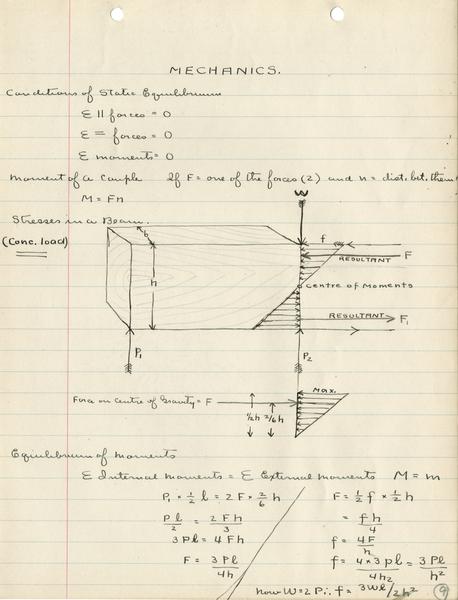 MECHANICS.
Conditions of Static Equilibrium
Σ || forces = 0
Σ = forces = 0
Σ moments = 0
Moment of a Couple If F = one of the forces (2) and n = dist. bet. them
M = Fn
W
Stresses in a Beam.
(Conc. load)
b
f
h
RESULTANT F
Centre of Moments
RESULTANT F₁
P₁
P₂
Force on Centre of Gravity = F
MAX.
½h 2/6 h
Equilibrium of moments
Σ Internal moments = Σ External moments M = m
P₁ × ½ l = 2F × 2/6 h F = ½ f × ½ h
Pl/2 = 2Fh/3 = fh/4
3Pl = 4Fh f = 4F/h
F = 3Pl/4h f = 4×3Pl/4h² = 3Pl/h²
now W = 2P ∴ f = 3Wl/2h²
9